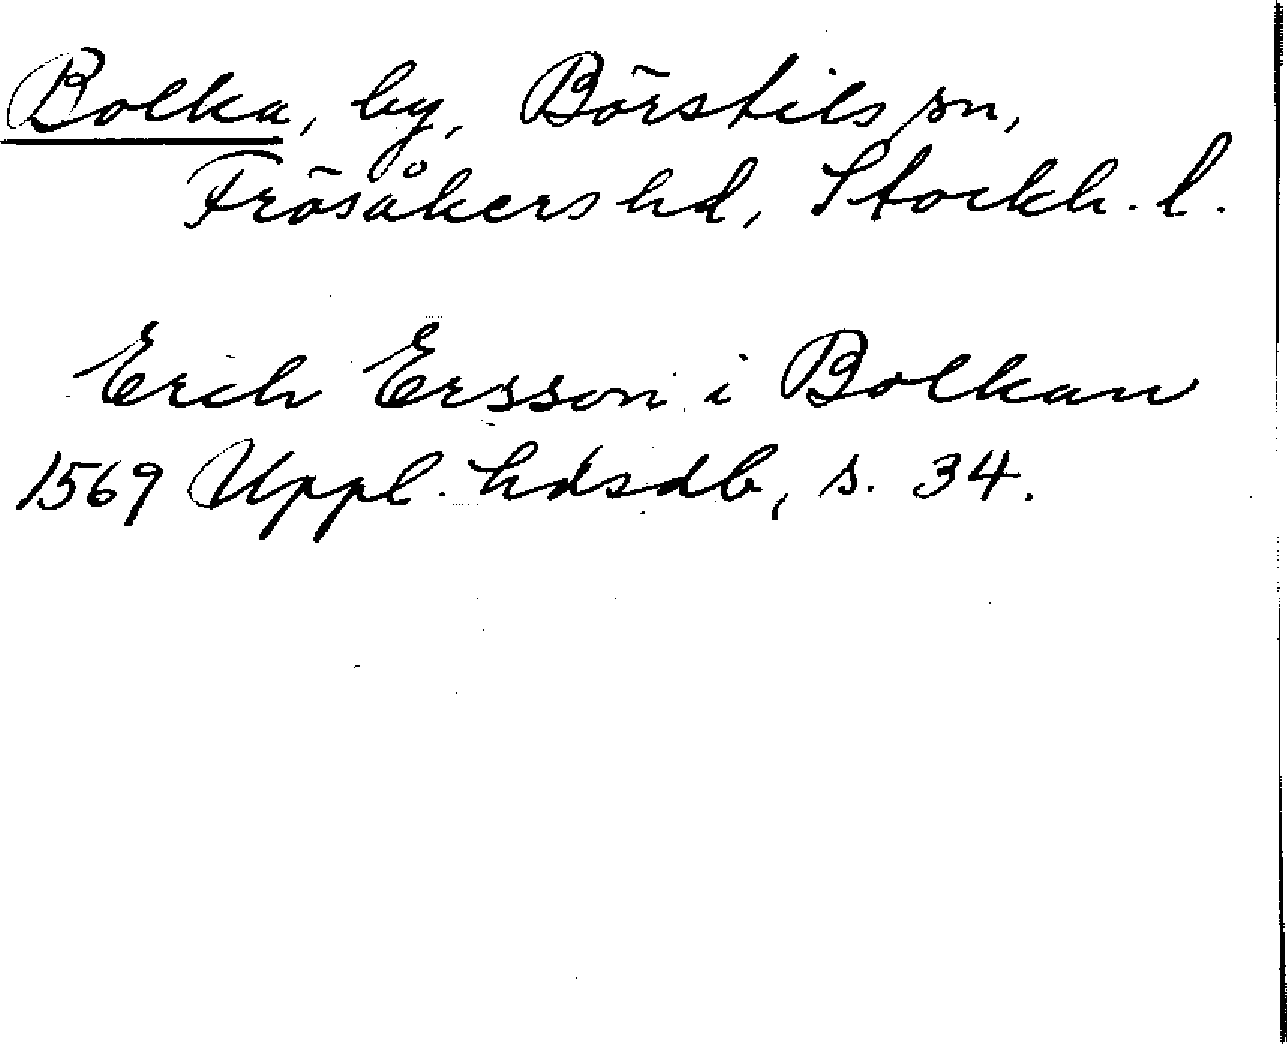 Bolka, by, Börstils sn,
Frösåkers hd, Stockh. l.
Erich Ersson i Bolkan
1569 Uppl. hdsdb, s. 34.